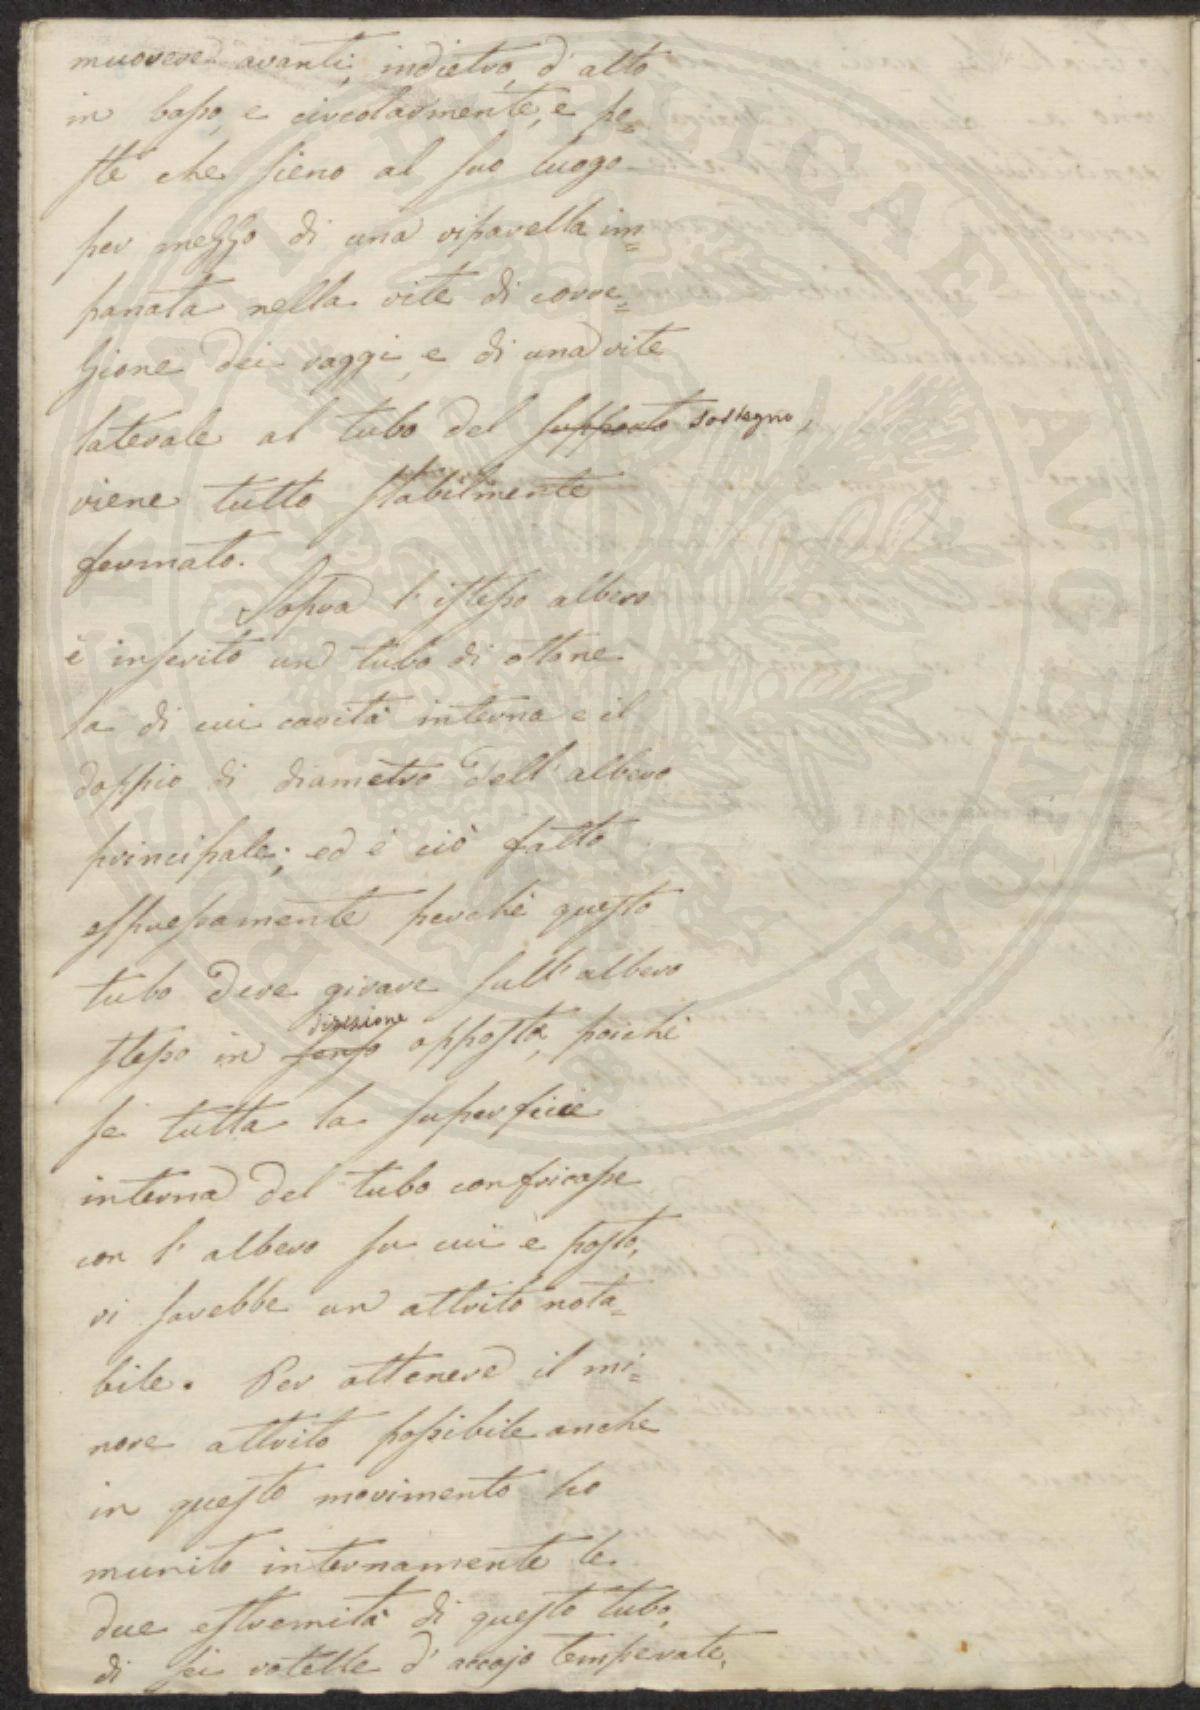 muovere avanti, indietro, d'alto
in basso, e circolarmente, e pe=
ste che sieno al suo luogo
per mezzo di una riparella im=
panata nella vite di corre=
zione dei raggi, e di una vite
laterale al tubo del supporto sostegno,
viene tutto stabilmente
fermato.
Sopra l'istesso albero
è inserito un tubo di ottone
la di cui cavità interna e il
doppio di diametro dell'albero
principale; ed è ciò fatto
espressamente perchè questo
tubo deve girare sull'albero
direzione
stesso in senso opposta, poichè
se tutta la superficie
interna del tubo confricasse
con l'albero su cui è posto,
vi sarebbe un attrito nota=
bile. Per ottenere il mi=
nore attrito possibile anche
in questo movimento ho
munito internamente le
due estremità di questo tubo,
di sei rotelle d'accajo temperate,